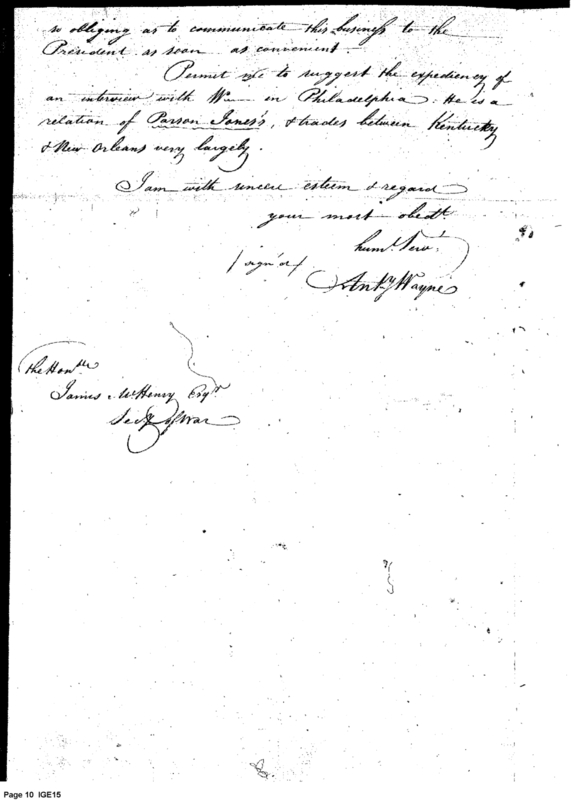 so obliging as to communicate this business to the
President as soon as convenient —
Permit me to suggest the expediency of
an interview with W— in Philadelphia. He is a
relation of Parson Jones's, & trades between Kentucky
& New Orleans very largely.
I am with sincere esteem & regard
your most obedt.
humb. Servt.
/ sign'd /
Anty Wayne
The Honble
James McHenry Esqr.
Secy of War
Page 10 IGE15